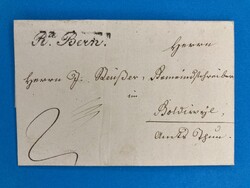 R. Bern.
Herrn
Herrn J. Reußer, Gemeindschreiber
im
Boldiwyl
Amts Thun.
2